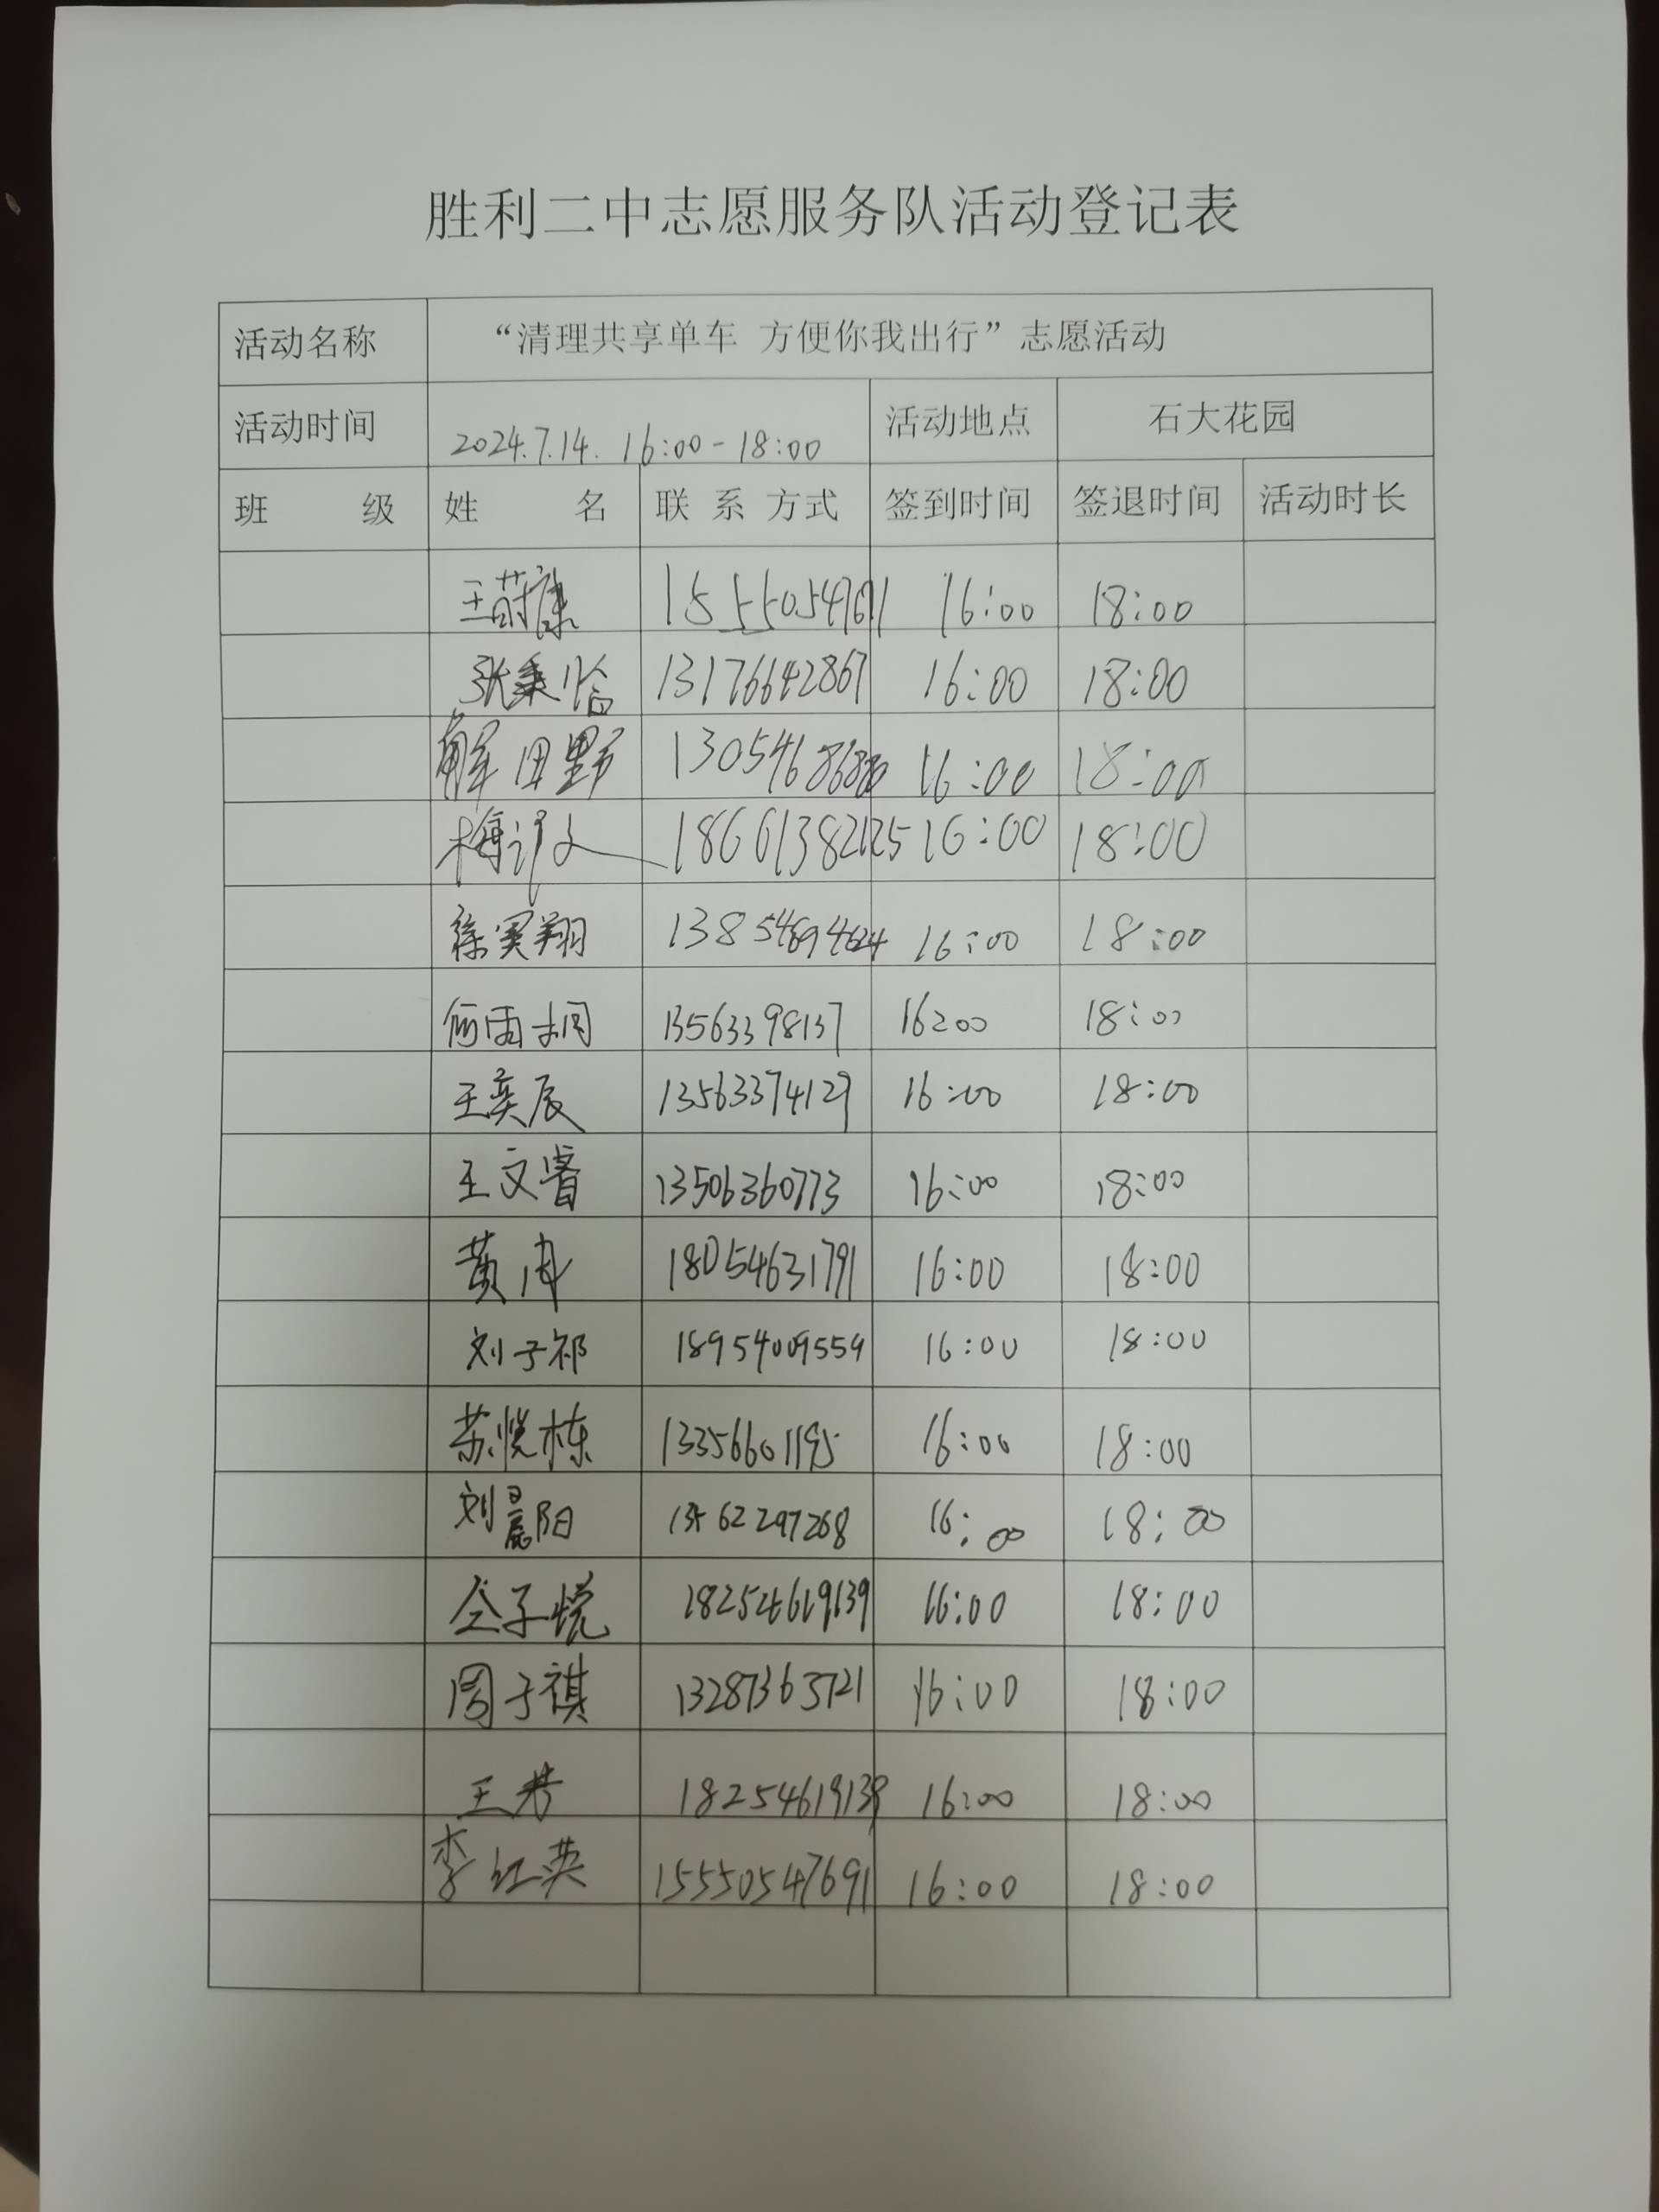 胜利二中志愿服务队活动登记表
活动名称 “清理共享单车 方便你我出行”志愿活动
活动时间 2024.7.14. 16:00-18:00 活动地点 石大花园
班 级 姓 名 联 系 方式 签到时间 签退时间 活动时长
王莳康 16:00 18:00
张秉恰 13176642867 16:00 18:00
解田野 16:00 18:00
梅 18661382125 16:00 18:00
徐寞翔 13854694624 16:00 18:00
何雨桐 13563398137 16:00 18:00
王奕辰 13563374129 16:00 18:00
王文睿 13506360773 16:00 18:00
黄冉 18054631791 16:00 18:00
刘子祁 18954009559 16:00 18:00
苏悦栋 13356601195 16:00 18:00
刘晨阳 13562297268 16:00 18:00
仝子悦 18254619139 16:00 18:00
周子祺 13287363721 16:00 18:00
王芳 18254619139 16:00 18:00
李红英 15550547691 16:00 18:00